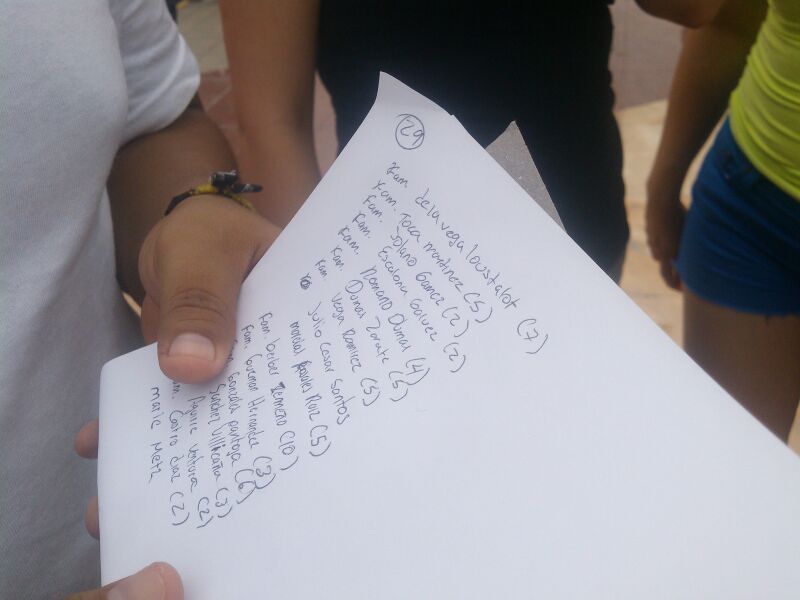 29
Fam. de la vega loustalot (7)
Fam. Toca martinez (5)
Fam. Solano Gamez (2)
Fam. Escalona Galvez (2)
Fam. Romano Dumal (4)
Fam. Dumal Zarate (5)
Fam. Vega Ramirez (5)
Julio Cesar Santos
Rosales Ruiz (5)
Fam. beiber Zermeño (10)
Fam. Guzman Hernandez (3)
Gonzalez pantoja (6)
Sanchez Villicaña (3)
Aguirre Ventura (2)
Castro Diaz (2)
Marie Metz